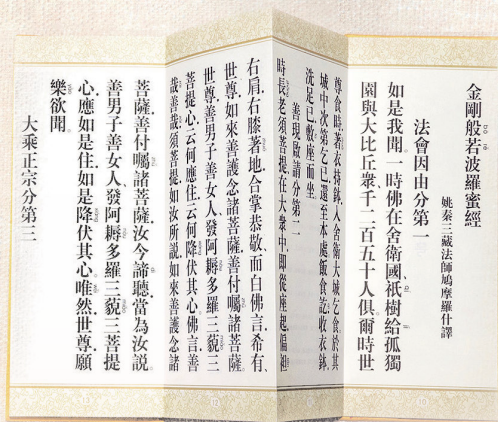 金剛般若波羅蜜經
姚秦三藏法師鳩摩羅什譯
法會因由分第一
如是我聞.一時佛在舍衛國.祇樹給孤獨
園.與大比丘衆.千二百五十人俱.爾時世
尊.食時.著衣持鉢.入舍衛大城乞食.於其
城中.次第乞已.還至本處.飯食訖.收衣鉢.
洗足已.敷座而坐.
善現啟請分第二
時長老須菩提.在大衆中.即從座起.偏袒
右肩.右膝著地.合掌恭敬.而白佛言.希有.
世尊.如來善護念諸菩薩.善付囑諸菩薩.
世尊.善男子善女人.發阿耨多羅三藐三
菩提心.云何應住.云何降伏其心.佛言.善
哉善哉.須菩提.如汝所說.如來善護念諸
菩薩.善付囑諸菩薩.汝今諦聽.當為汝說.
善男子善女人.發阿耨多羅三藐三菩提
心.應如是住.如是降伏其心.唯然.世尊.願
樂欲聞.
大乘正宗分第三